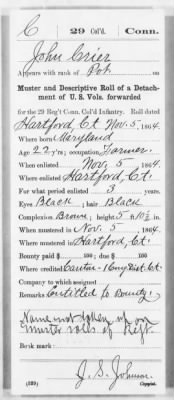 C 29 Col'd. Conn.
John Crier
Appears with rank of Pvt. on
Muster and Descriptive Roll of a Detach-
ment of U. S. Vols. forwarded
for the 29 Reg't Conn. Col'd Infantry. Roll dated
Hartford, Ct Nov. 5, 1864.
Where born Maryland
Age 22 y'rs; occupation Farmer.
When enlisted Nov. 5, 1864.
Where enlisted Hartford, Ct.
For what period enlisted 3 years.
Eyes Black; hair Black
Complexion Brown; height 5 ft. in.
When mustered in Nov. 5, 1864.
Where mustered in Hartford, Ct.
Bounty paid $ 100; due $ 100
Where credited Canton Cong Dist. Ct
Company to which assigned
Remarks: Entitled to Bounty.
Name not taken up on
muster rolls of Regt.
Book mark:
J. S. Johnson
(339) Copyist.